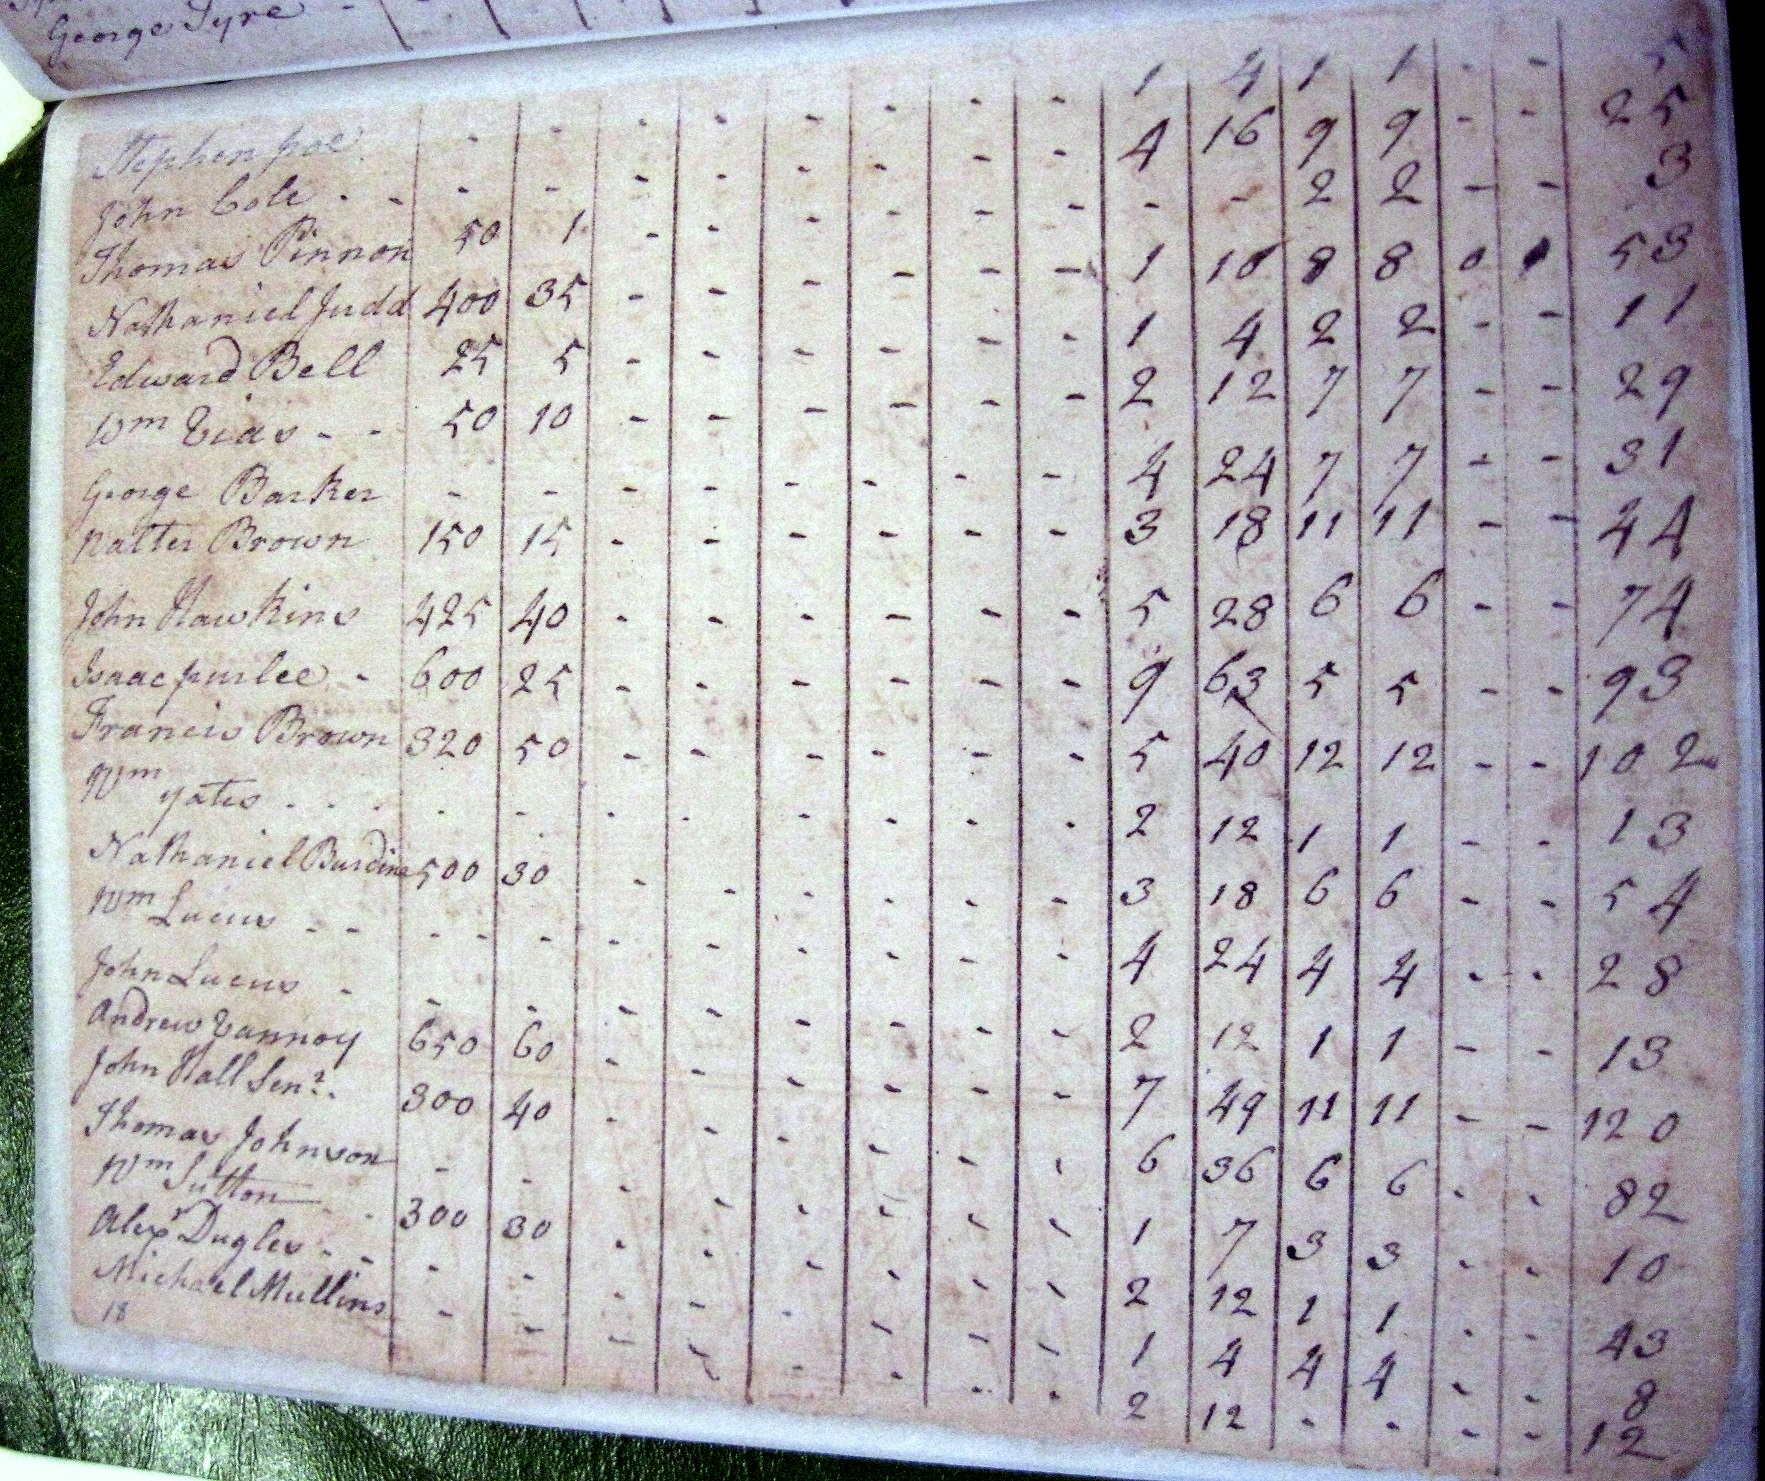 George Tyre -
Stephen poe - - - - - - - - 1 4 1 1 - - 5
John Cole - - - - - - - - - - 4 16 9 9 - - 25
Thomas Pinnon 50 1 - - - - - - - - 2 2 - - 3
Nathaniel Judd 400 35 - - - - - - 1 10 8 8 0 53
Edward Bell 25 5 - - - - - - 1 4 2 2 - - 11
Wm Vias - - 50 10 - - - - - - 2 12 7 7 - - 29
George Barker - - - - - - - - 4 24 7 7 - - 31
Natter Brown 150 15 - - - - - - 3 18 11 11 - - 44
John Hawkins 425 40 - - - - - - 5 28 6 6 - - 74
Isaac purlee - 600 25 - - - - - - 9 63 5 5 - - 93
Francis Brown 320 50 - - - - - - 5 40 12 12 - - 102
Wm yates - - - - - - - - - - - 2 12 1 1 - - 13
Nathaniel Burdine 500 30 - - - - - - 3 18 6 6 - - 54
Wm Lucus - - - - - - - - - - - 4 24 4 4 - - 28
John Lucus - - - - - - - - - 2 12 1 1 - - 13
Andrew Vannoy 650 60 - - - - - - 7 49 11 11 - - 120
John Hall Senr. 300 40 - - - - - - 6 36 6 6 - - 82
Thomas Johnson - - - - - - - - 1 7 3 3 - - 10
Wm Sutton - 300 30 - - - - - - 2 12 1 1 - - 43
Alexr Dugles - - - - - - - - - - 1 4 4 4 - - 8
Michael Mullins - - - - - - - - 2 12 - - - - 12
18